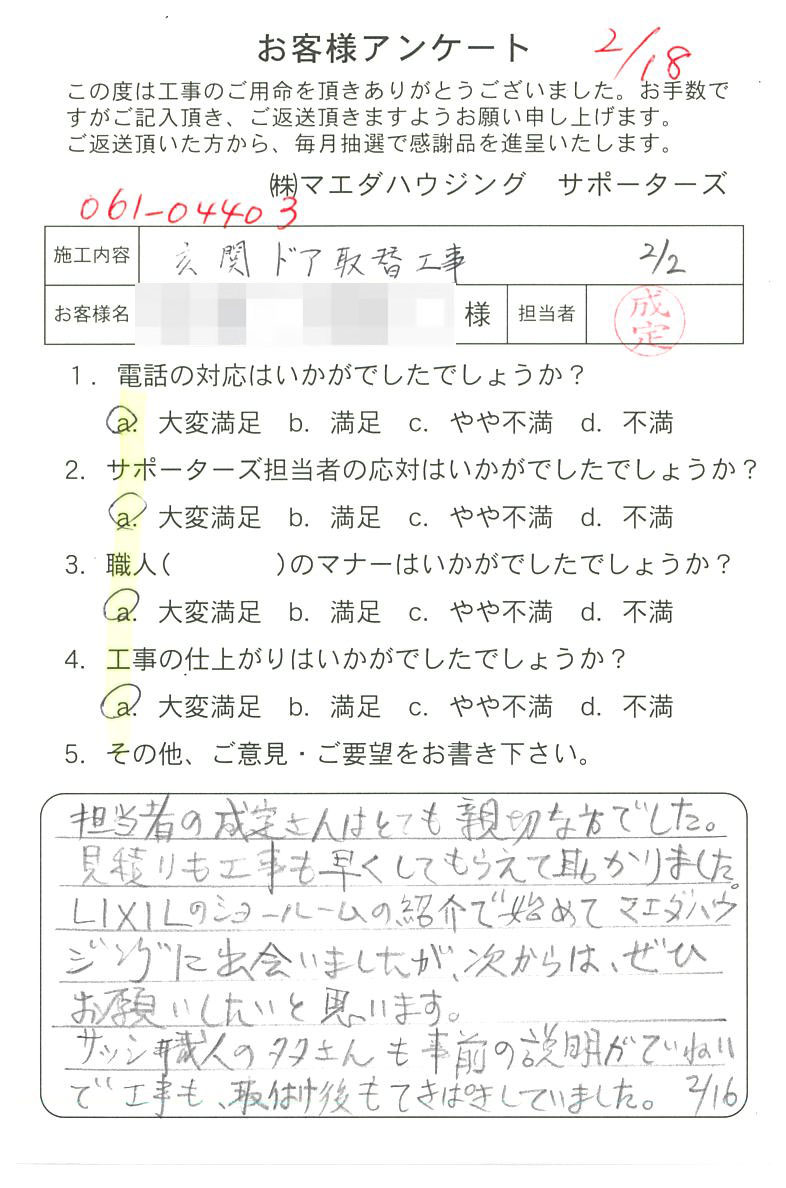 お客様アンケート 2/18
この度は工事のご用命を頂きありがとうございました。お手数で
すがご記入頂き、ご返送頂きますようお願い申し上げます。
ご返送頂いた方から、毎月抽選で感謝品を進呈いたします。
㈱マエダハウジング サポーターズ
061-04403
施工内容 玄関ドア取替工事 2/2
お客様名 様 担当者 成定
1. 電話の対応はいかがでしたでしょうか？
a. 大変満足 b. 満足 c. やや不満 d. 不満
2. サポーターズ担当者の応対はいかがでしたでしょうか？
a. 大変満足 b. 満足 c. やや不満 d. 不満
3. 職人( )のマナーはいかがでしたでしょうか？
a. 大変満足 b. 満足 c. やや不満 d. 不満
4. 工事の仕上がりはいかがでしたでしょうか？
a. 大変満足 b. 満足 c. やや不満 d. 不満
5. その他、ご意見・ご要望をお書き下さい。
担当者の成定さんはとても親切な方でした。
見積りも工事も早くしてもらえて助かりました。
LIXILのショールームの紹介で始めてマエダハウ
ジングに出会いましたが、次からは、ぜひ
お願いしたいと思います。
サッシ職人の さんも事前の説明がていねい
で工事も、取付け後もてきぱきしていました。 2/16